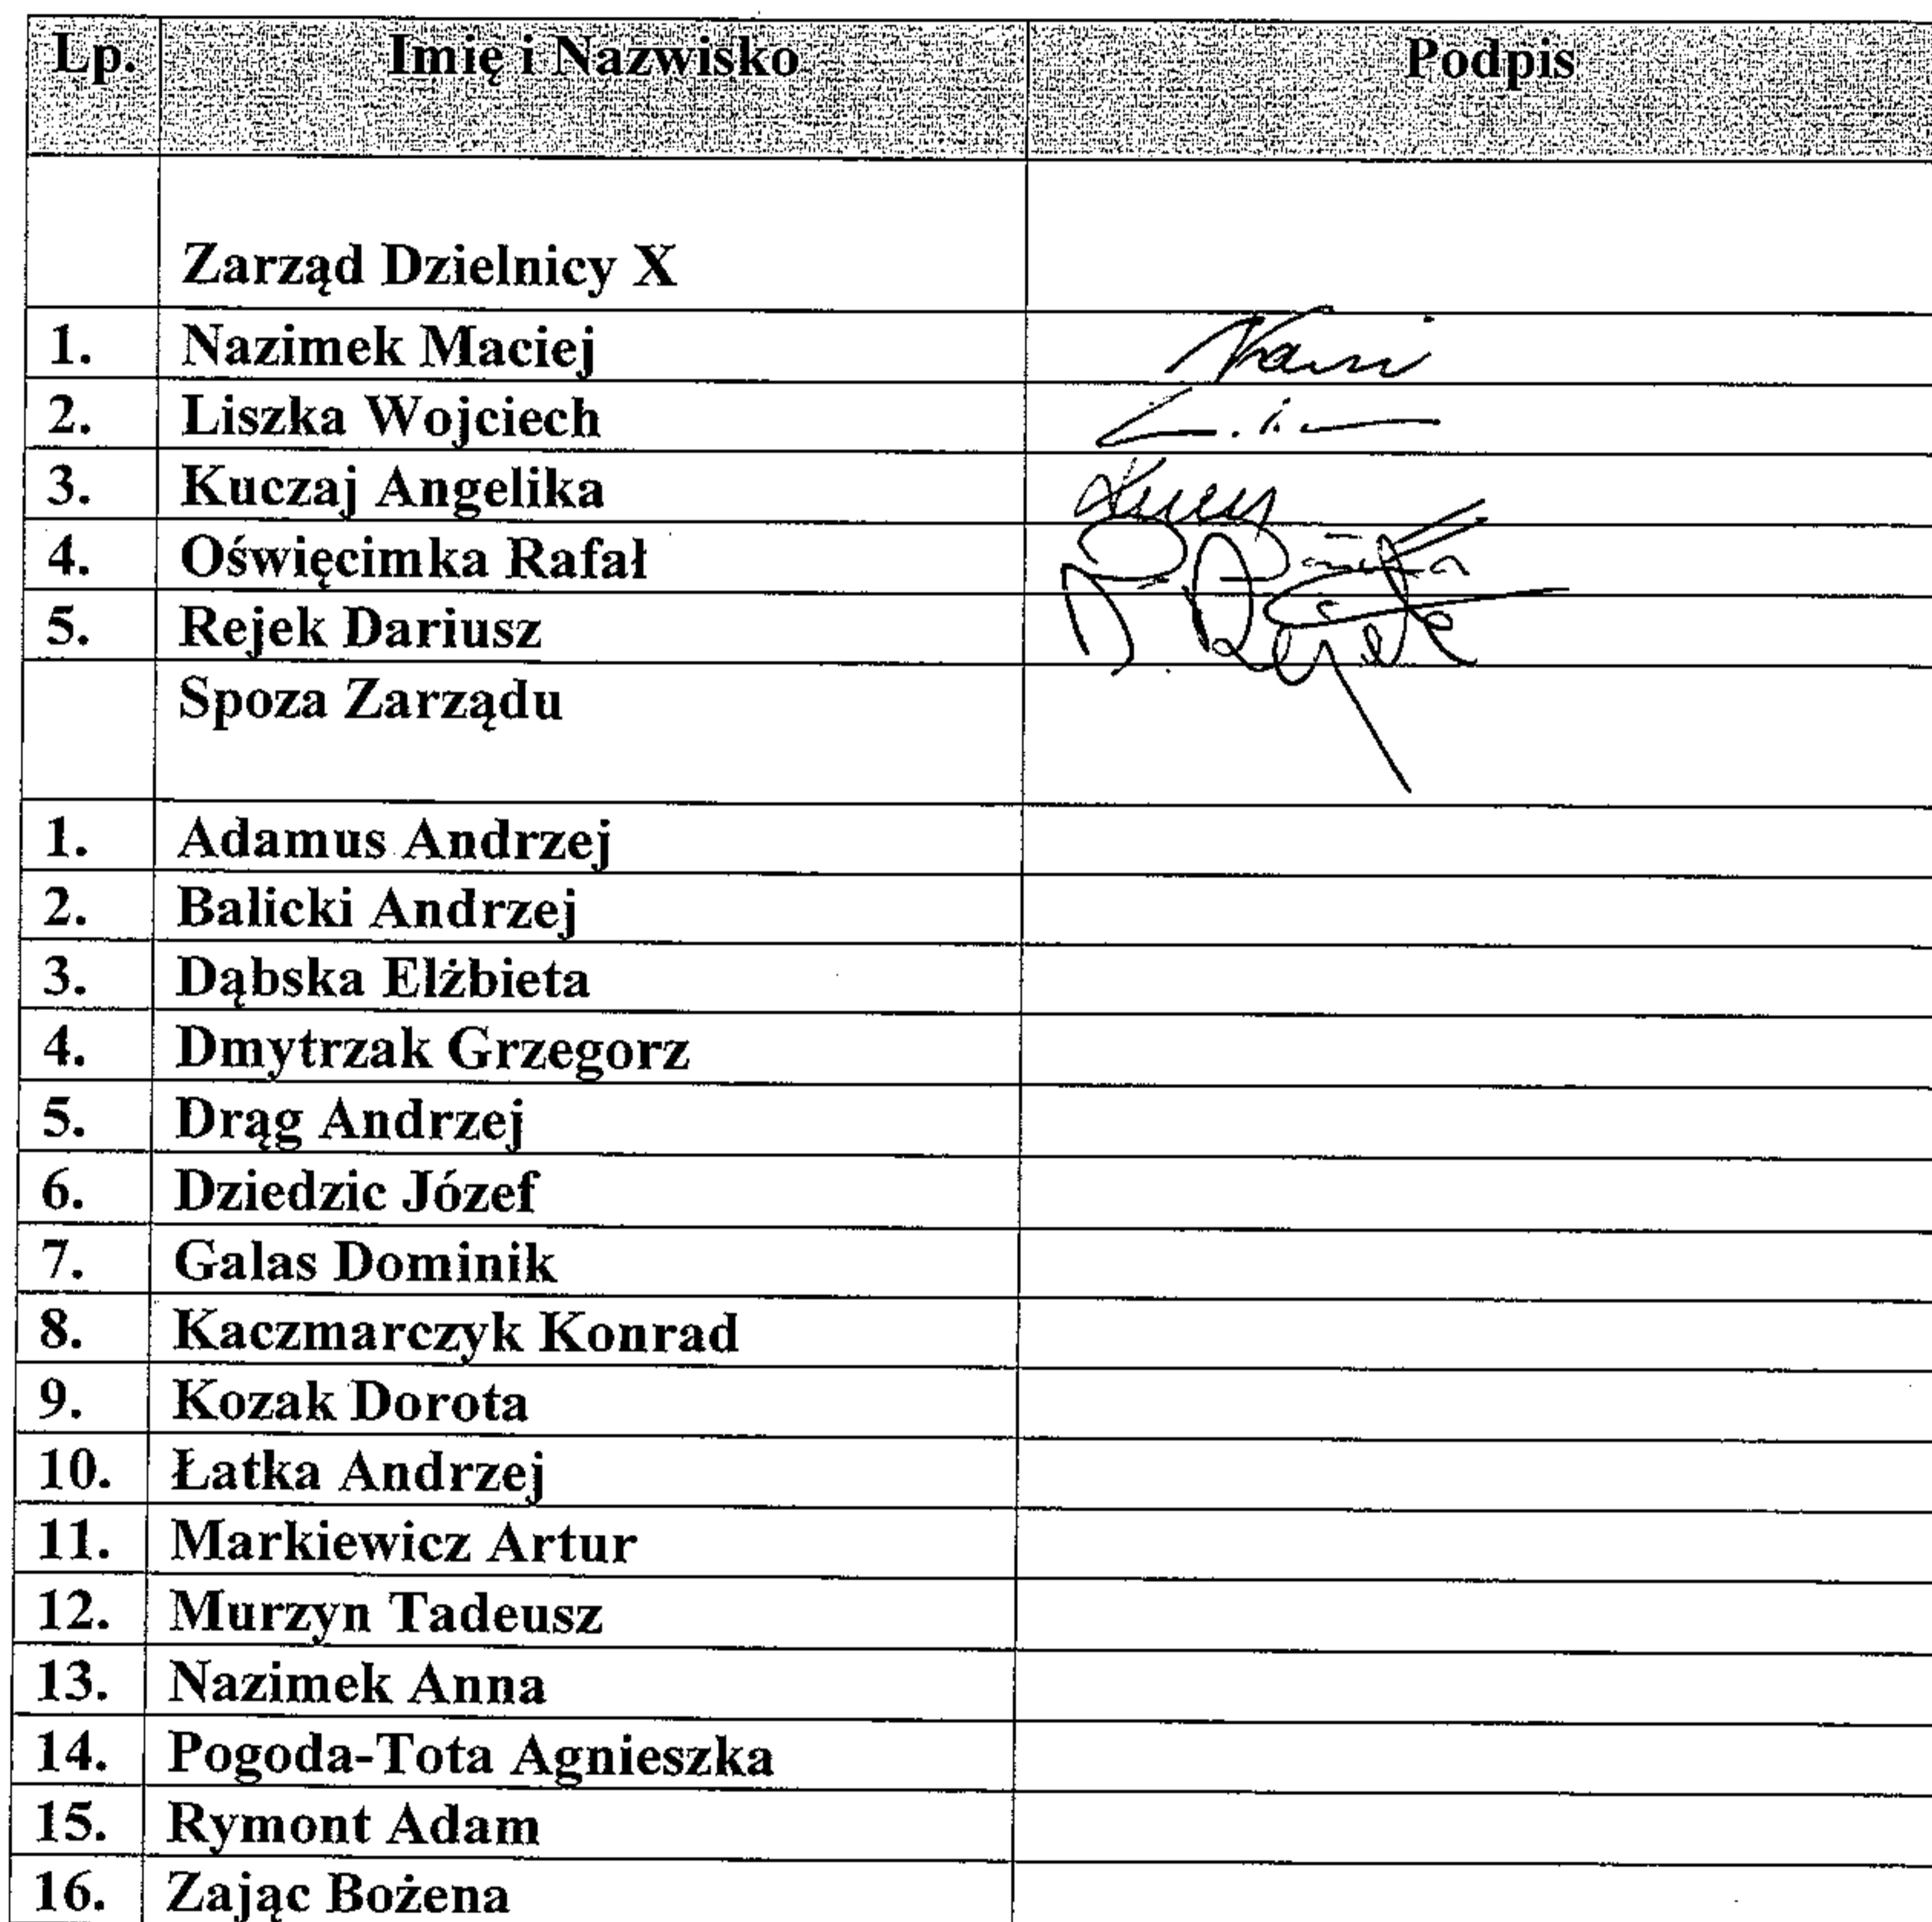 Lp. Imię i Nazwisko Podpis
Zarząd Dzielnicy X
1. Nazimek Maciej
2. Liszka Wojciech
3. Kuczaj Angelika
4. Oświęcimka Rafał
5. Rejek Dariusz
Spoza Zarządu
1. Adamus Andrzej
2. Balicki Andrzej
3. Dąbska Elżbieta
4. Dmytrzak Grzegorz
5. Drąg Andrzej
6. Dziedzic Józef
7. Galas Dominik
8. Kaczmarczyk Konrad
9. Kozak Dorota
10. Łatka Andrzej
11. Markiewicz Artur
12. Murzyn Tadeusz
13. Nazimek Anna
14. Pogoda-Tota Agnieszka
15. Rymont Adam
16. Zając Bożena